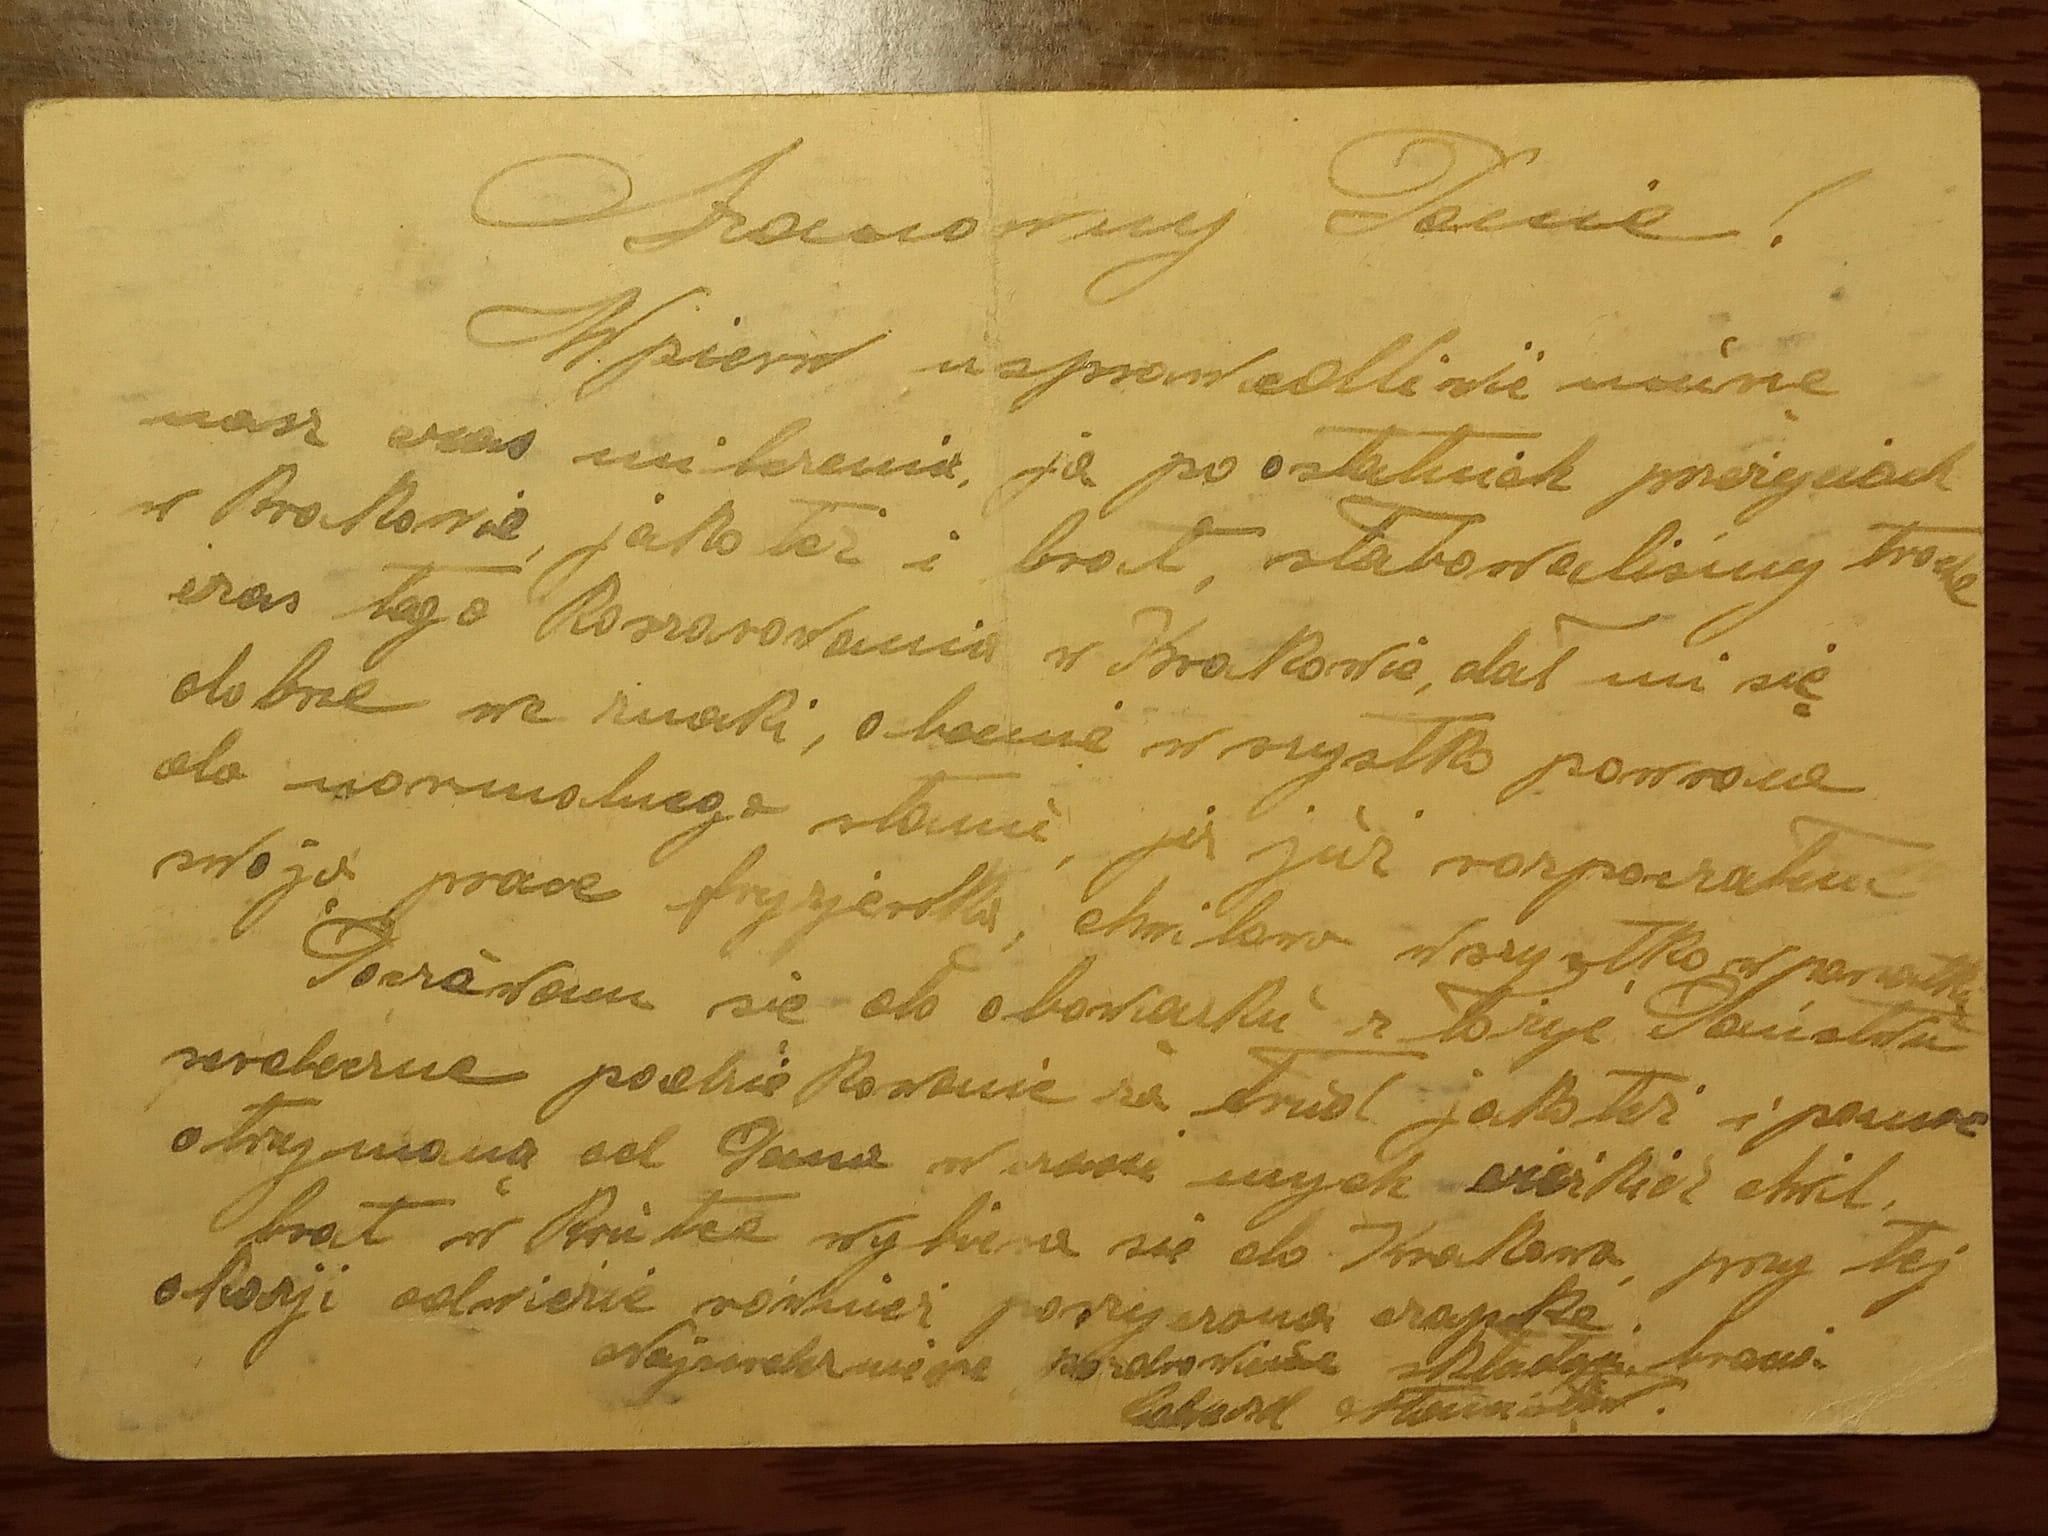 Szanowny Panie!
Wpierw usprawiedliwić muszę
nasz czas milczenia, ja po ostatnich przeżyciach
w Krakowie, jakoteż i brat, słabowaliśmy trochę
czas tego koszarowania w Krakowie, dał mi się
dobrze we znaki, obecnie wszystko powraca
do normalnego stanu, ja już rozpocząłem
swoją pracę fryzjerską, chwilowo wszystko w porządku
Poczuwam się do obowiązku złożyć Państwu
serdeczne podziękowanie za trud jakoteż i pomoc
otrzymaną od Pana w czasie mych ciężkich chwil,
brat w krótce wybiera się do Krakowa, przy tej
okazji odwiezie również pożyczoną czapkę.
Najserdeczniejsze pozdrowienia składają bracia
Edward Stanisław.